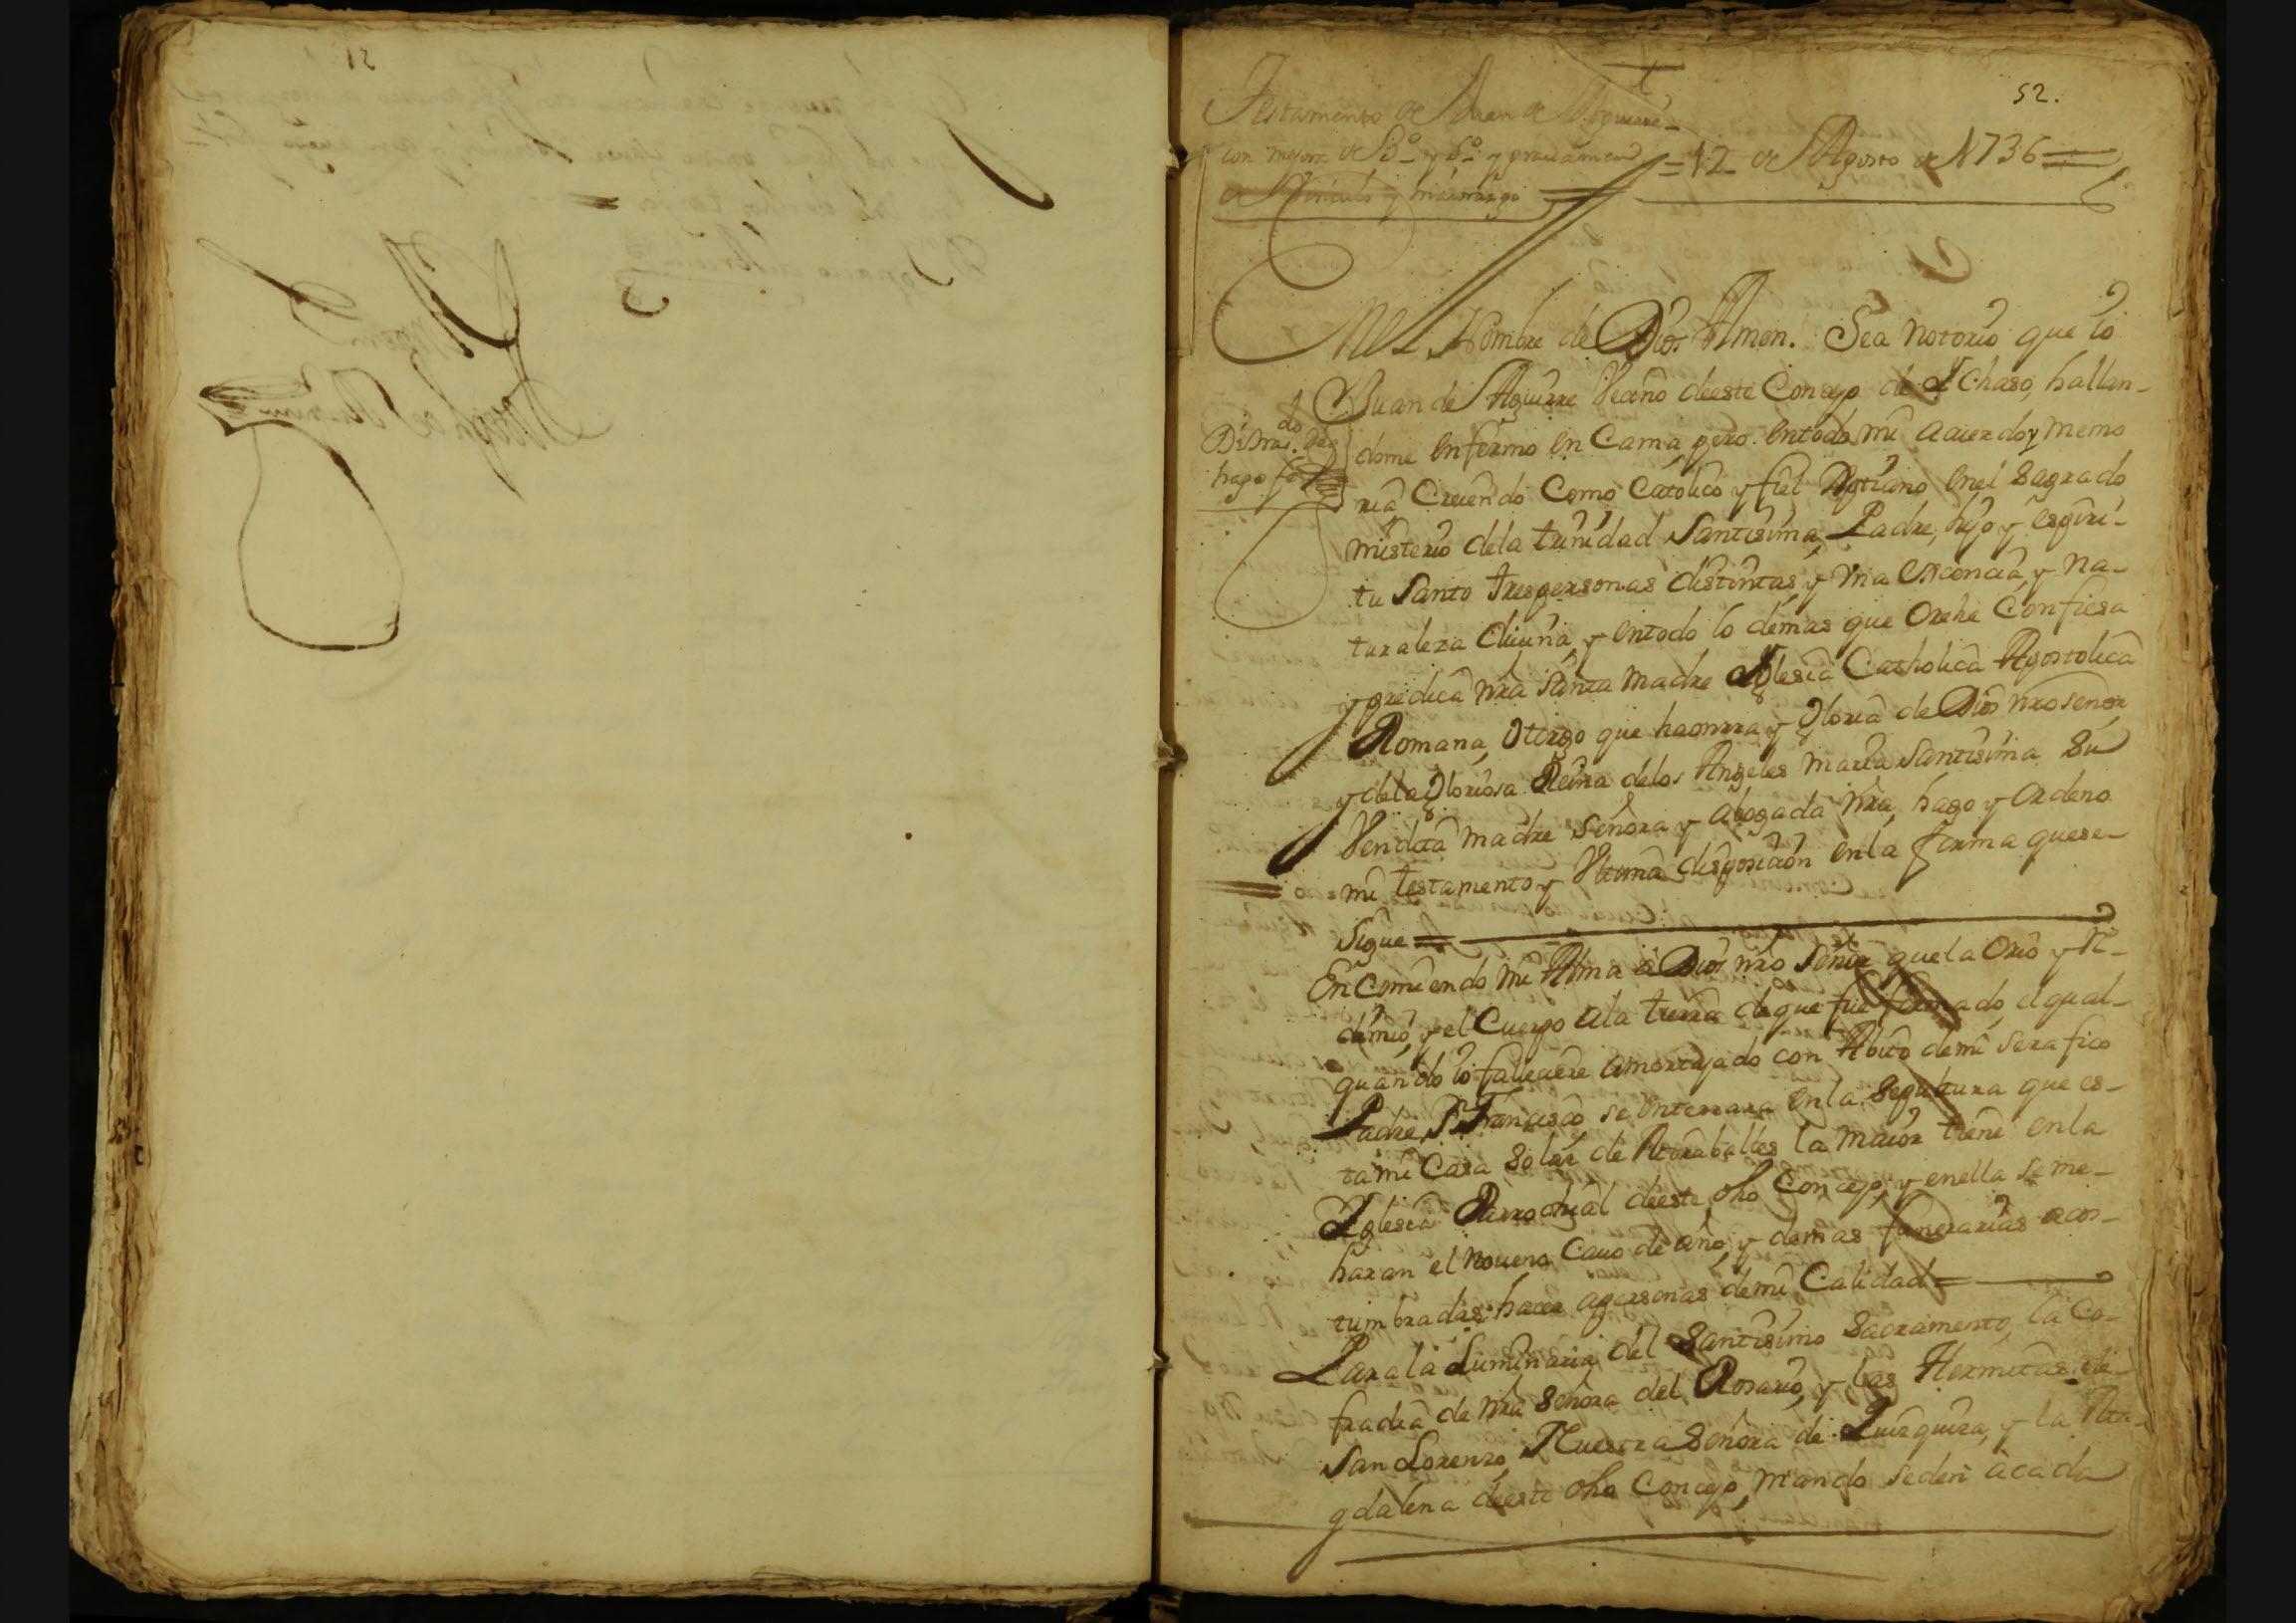 52.
Testamento de Juan de Aguirre
con mejora de 3º y 5º y gravamen
de Vinculo y maiorazgo
= 12 de Agosto de 1736 =
En el Nombre de Dios Amen. Sea notorio que io
Juan de Aguirre Vecino deeste Concejo de Ichaso, hallan-
dome enfermo en Cama, pero entodo mi acuerdo y memo
ria, Creiendo Como Catolico y fiel Xptiano enel Sagrado
misterio dela trinidad Santisima, Padre, hijo y espiri-
tu Santo tres personas distintas, y vna esencia, y na-
turaleza diuina, y entodo lo demas que Crehe Confiesa
y predica nra Santa Madre Iglesia Catholica Apostolica
Romana, Otorgo que ha onrra y gloria de Dios nro señor
y dela gloriosa Reina delos Angeles maria Santisima Su
Vendita madre Señora y abogada nra, hago y Ordeno
mi testamento y Vltima disposicion enla forma quese-
Sigue =
Encomiendo mi Alma a Dios nro Señor quela Crio y re-
dimio, y el Cuerpo ala tierra deque fue formado, el qual-
quando io falleciere amortajado con Abito demi Serafico
Padre S. Francisco se enterrara enla Sepultura que es-
ta mi Casa Solar de la maior tiene enla
Iglesia Parrochial deeste dho Concejo, y enella se me-
haran el noueno Cauo de año, y demas funerarias acos-
tumbradas hacer apersonas demi Calidad =
Para la Luminaria del Santisimo Sacramento, la Co-
fradia de nra Señora del Rosario, y las Hermitas de
San Lorenzo, Nuestra Señora de y la Ma-
gdalena deeste dho Concejo, mando seden a cada
hago fe